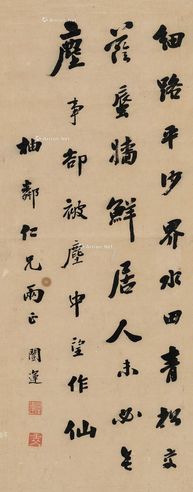 細路平沙界水田青松交
蔭蜃墻鮮居人未必無
塵事却被塵中望作仙
柚鄰仁兄雨正 闓運